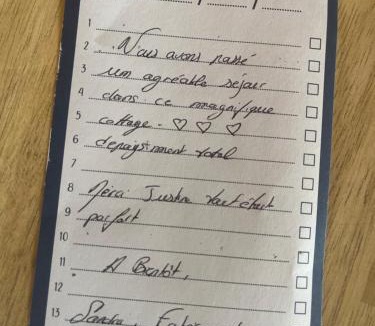 1
2 Nous avons passé
3 um agréable séjour
4 dans ce magnifique
5 cottage. ♡ ♡ ♡
6 depaysement total
7
8 Merci Justine tout était
9 parfait
10
11 A Bientôt,
12
13 Sandra,